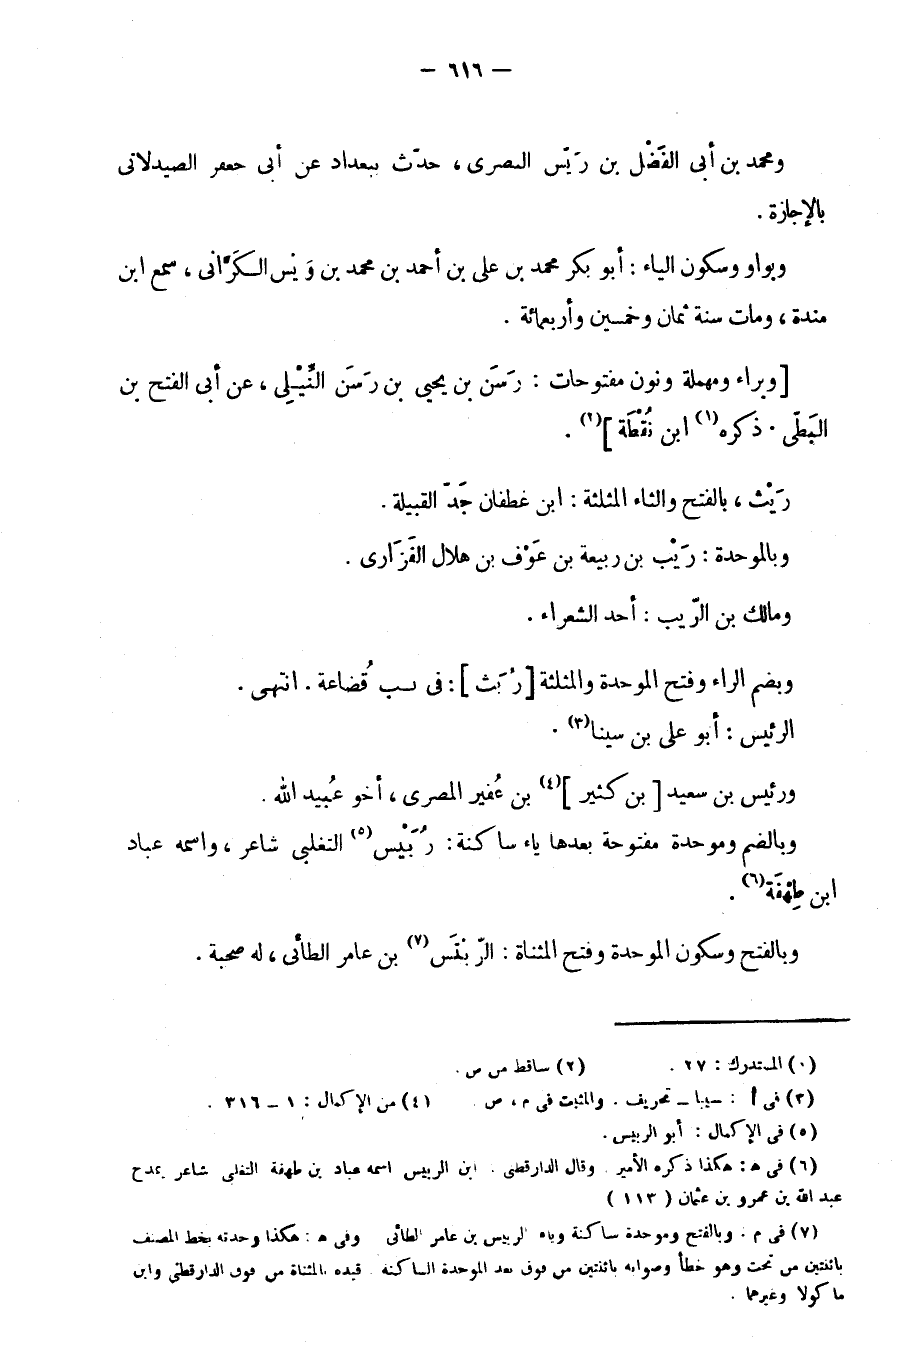 — ٦١٦ —
ومحمد بن أبى الفَضْل بن رَيّس البصرى ، حدّث ببغداد عن أبى جعفر الصيدلانى
بالإجازة .
وبواو وسكون الياء : أبو بكر محمد بن على بن أحمد بن محمد بن وَيْس الكَرّانى ، سمع ابن
مندة ، ومات سنة ثمان وخمسين وأربعمائة .
[ وبراء ومهملة ونون مفتوحات : رَسَن بن يحيى بن رَسَن النِّيْلِى ، عن أبى الفتح بن
البَطّى . ذكره(١) ابن نُقْطَة ](٢) .
رَيْث ، بالفتح والثاء المثلثة : ابن غطفان جَدّ القبيلة .
وبالموحدة : رَيْب بن ربيعة بن عَوْف بن هلال الفَزَارى .
ومالك بن الرّيب : أحد الشعراء .
وبضم الراء وفتح الموحدة والمثلثة [ رُبَث ] : فى نسب قُضاعة . انتهى .
الرئيس : أبو على بن سينا(٣) .
ورئيس بن سعيد [ بن كثير ](٤) بن عُفير المصرى ، أخو عُبيد الله .
وبالضم وموحدة مفتوحة بعدها ياء ساكنة : رُبَيْس(٥) التغلبى شاعر ، واسمه عباد
ابن طِهْفَة(٦) .
وبالفتح وسكون الموحدة وفتح المثناة : الرّبْتَس(٧) بن عامر الطائى ، له صحبة .
(١) المستدرك : ٢٧ . (٢) ساقط من ص .
(٣) فى أ : ـ سيبا ـ تحريف . والمثبت فى م ، ص (٤) من الإكمال : ١ ـ ٣١٦ .
(٥) فى الإكمال : أبو الربيس .
(٦) فى ه : هكذا ذكره الأمير . وقال الدارقطنى . ابن الربيس اسمه عباد بن طهفة التغلبى شاعر يمدح
عبد الله بن عمرو بن عثمان ( ١١٣ )
(٧) فى م . وبالفتح وموحدة ساكنة وياء الربيس بن عامر الطائى وفى ه : هكذا وجدته بخط المصنف
باثنتين من تحت وهو خطأ وصوابه باثنتين من فوق بعد الموحدة الساكنة . قيده بالمثناة من فوق الدارقطنى وابن
ماكولا وغيرهما .